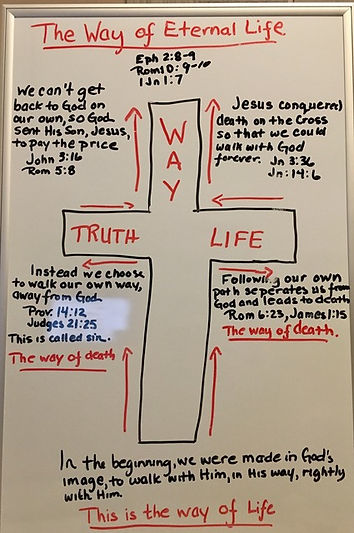 The Way of Eternal Life.
Eph 2:8-9
Rom 10:9-10
1 Jn 1:7
We can't get
back to God on
our own, so God
sent His Son, Jesus,
to pay the price
John 3:16
Rom 5:8
Jesus conquered
death on the Cross
so that we could
walk with God
forever. Jn 3:36
Jn: 14:6
WAY
TRUTH LIFE
Instead we choose
to walk our own way,
away from God
Prov. 14:12
Judges 21:25
This is called sin.
The way of death
Following our own
path seperates us from
God and leads to death
Rom 6:23, James 1:15
The way of death.
In the beginning, we were made in God's
image, to walk with Him, in His way, rightly
with Him.
This is the way of Life